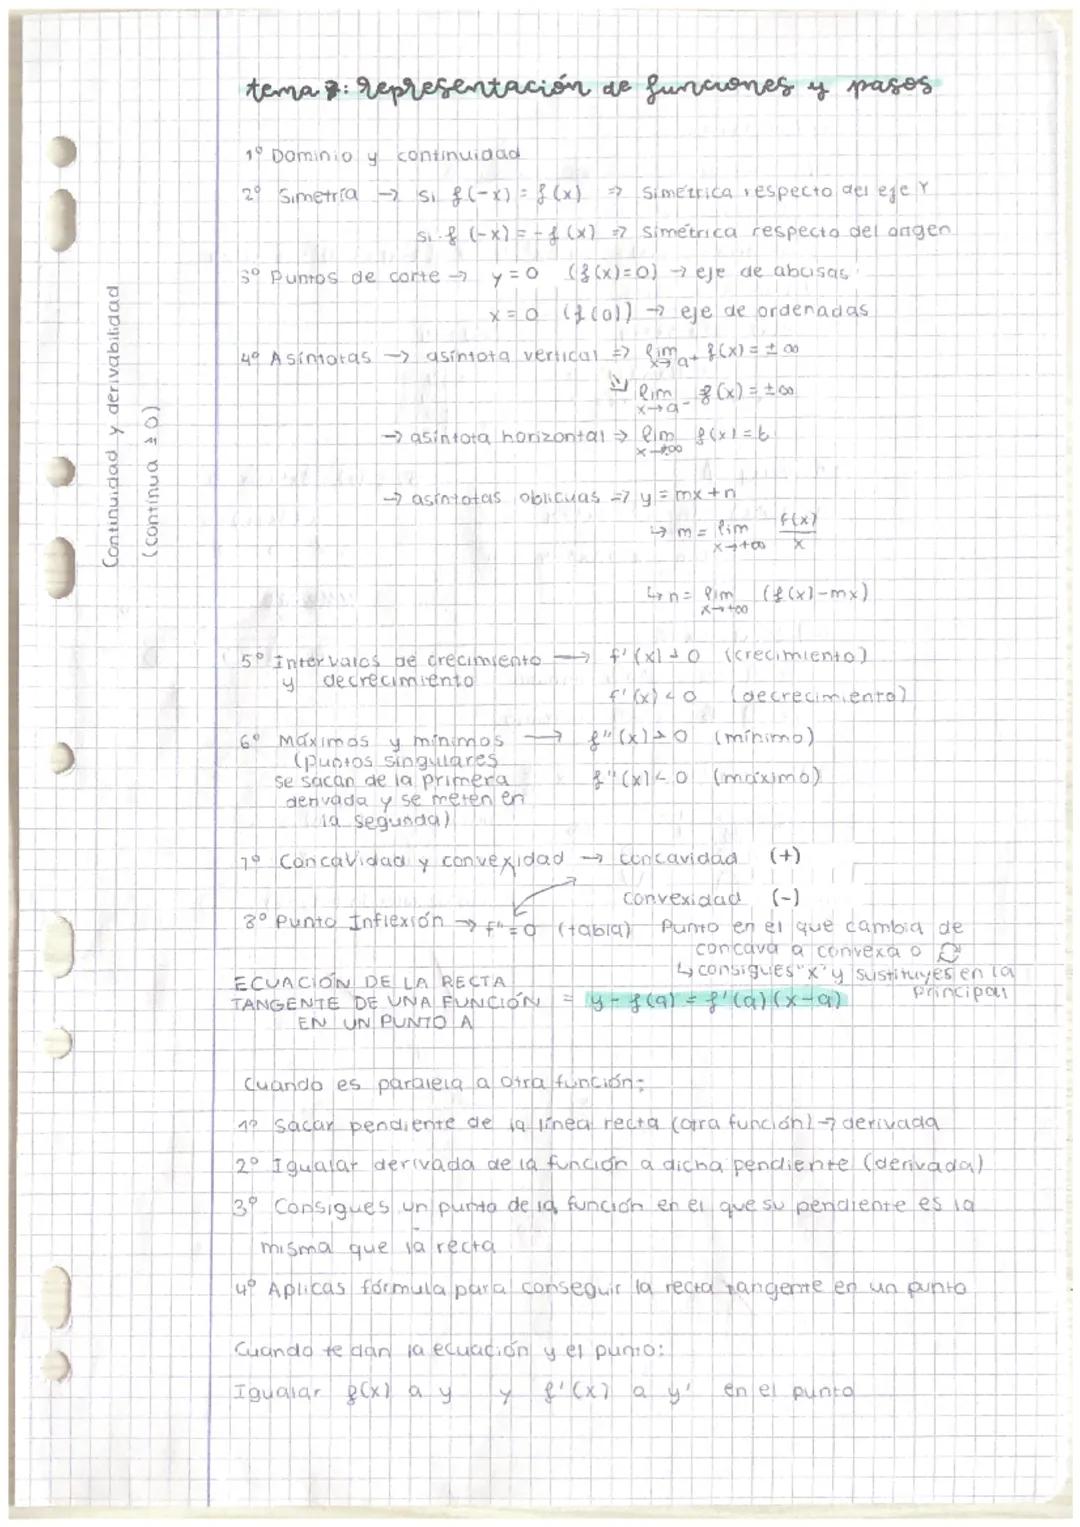 tema 7: representación de funciones y pasos
1º Dominio y continuidad
2º Simetría → si f(-x) = f(x) => simétrica respecto del eje Y
si f(-x) = -f(x) => simétrica respecto del origen
3º Puntos de corte → y = 0 (f(x)=0) → eje de abcisas
x = 0 (f(0)) → eje de ordenadas
4º Asíntotas → asíntota vertical => lim x→a+ f(x) = ±∞
lim x→a- f(x) = ±∞
→ asíntota horizontal => lim x→±∞ f(x) = b
→ asíntotas oblicuas => y = mx+n
↳ m = lim x→+∞ f(x)/x
↳ n = lim x→+∞ (f(x)-mx)
5º Intervalos de crecimiento → f'(x) > 0 (crecimiento)
y decrecimiento
f'(x) < 0 (decrecimiento)
6º Máximos y mínimos → f''(x) > 0 (mínimo)
(puntos singulares
se sacan de la primera f''(x) < 0 (máximo)
derivada y se meten en
la segunda)
7º Concavidad y convexidad → concavidad (+)
convexidad (-)
8º Punto Inflexión → f''=0 (tabla) Punto en el que cambia de
cóncava a convexa o
↳ consigues "x" y sustituyes en la
principal
ECUACIÓN DE LA RECTA
TANGENTE DE UNA FUNCIÓN = y - f(a) = f'(a)(x-a)
EN UN PUNTO A
Cuando es paralela a otra función:
1º Sacar pendiente de la línea recta (otra función) → derivada
2º Igualar derivada de la función a dicha pendiente (derivada)
3º Consigues un punto de la función en el que su pendiente es la
misma que la recta
4º Aplicas fórmula para conseguir la recta tangente en un punto
Cuando te dan la ecuación y el punto:
Igualar f(x) a y y f'(x) a y' en el punto
Continuidad y derivabilidad
(continua ≠ 0)